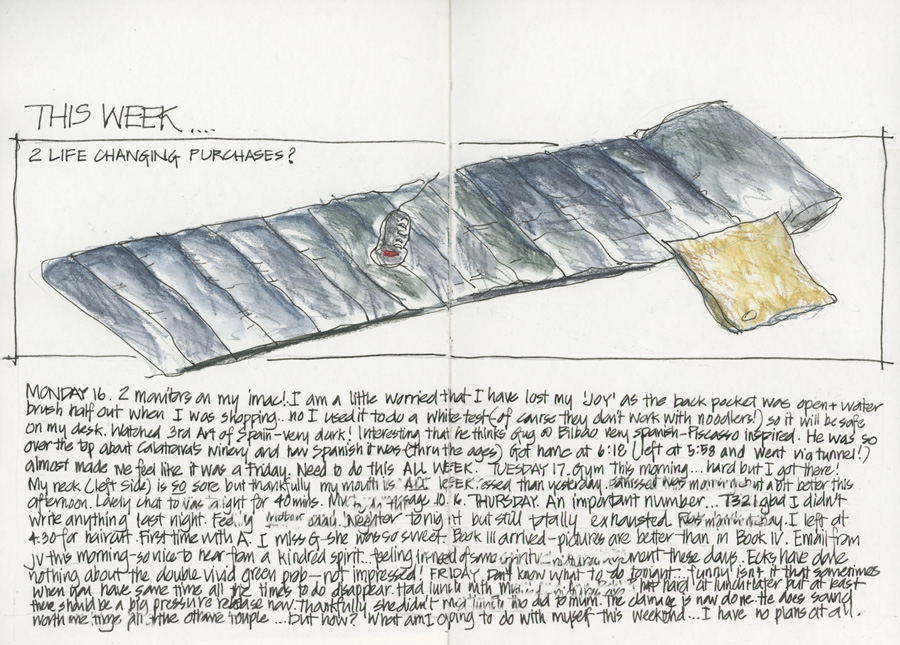 THIS WEEK....
2 LIFE CHANGING PURCHASES?
MONDAY 16. 2 monitors on my imac! I am a little worried that I have lost my 'Joy' as the back pocket was open + water
brush half out when I was shopping... no I used it to do a white test (of course they don't work with noodlers!) so it will be safe
on my desk. Watched 3rd Art of Spain - very dark! Interesting that he thinks Gug @ Bilbao very spanish - Piscasso inspired. He was so
over the top about Calatrava's winery and how Spanish it was (thru the ages) Got home at 6:18 (left at 5:58 and went via tunnel!)
almost made me feel like it was a Friday. Need to do this ALL WEEK. TUESDAY 17. Gym this morning... hard but I got there!
My neck (left side) is so sore but thankfully my mouth is LESS than yesterday. but a bit better this
afternoon. Lovely chat to for 40 mins. THURSDAY. An important number... I didn't
write anything last night. tonight but still totally exhausted. I left at
4:30 for haircut. First time with A. I miss G - she was so sweet. Book III arrived - pictures are better than in Book IV. Email from
JV this morning - so nice to hear from a kindred spirit... feeling in need of some these days. Ecks have done
nothing about the double vivid green prob - not impressed! FRIDAY. Don't know what to do tonight... funny isn't it that sometimes
when you have some time all the times to do disappear. Had lunch with hard at lunch later but at least
there should be a big pressure release now. thankfully she didn't did to mum. The damage is now done. He does sound
worth me time all the trouple ... but how? What am I going to do with myself this weekend... I have no plans at all.